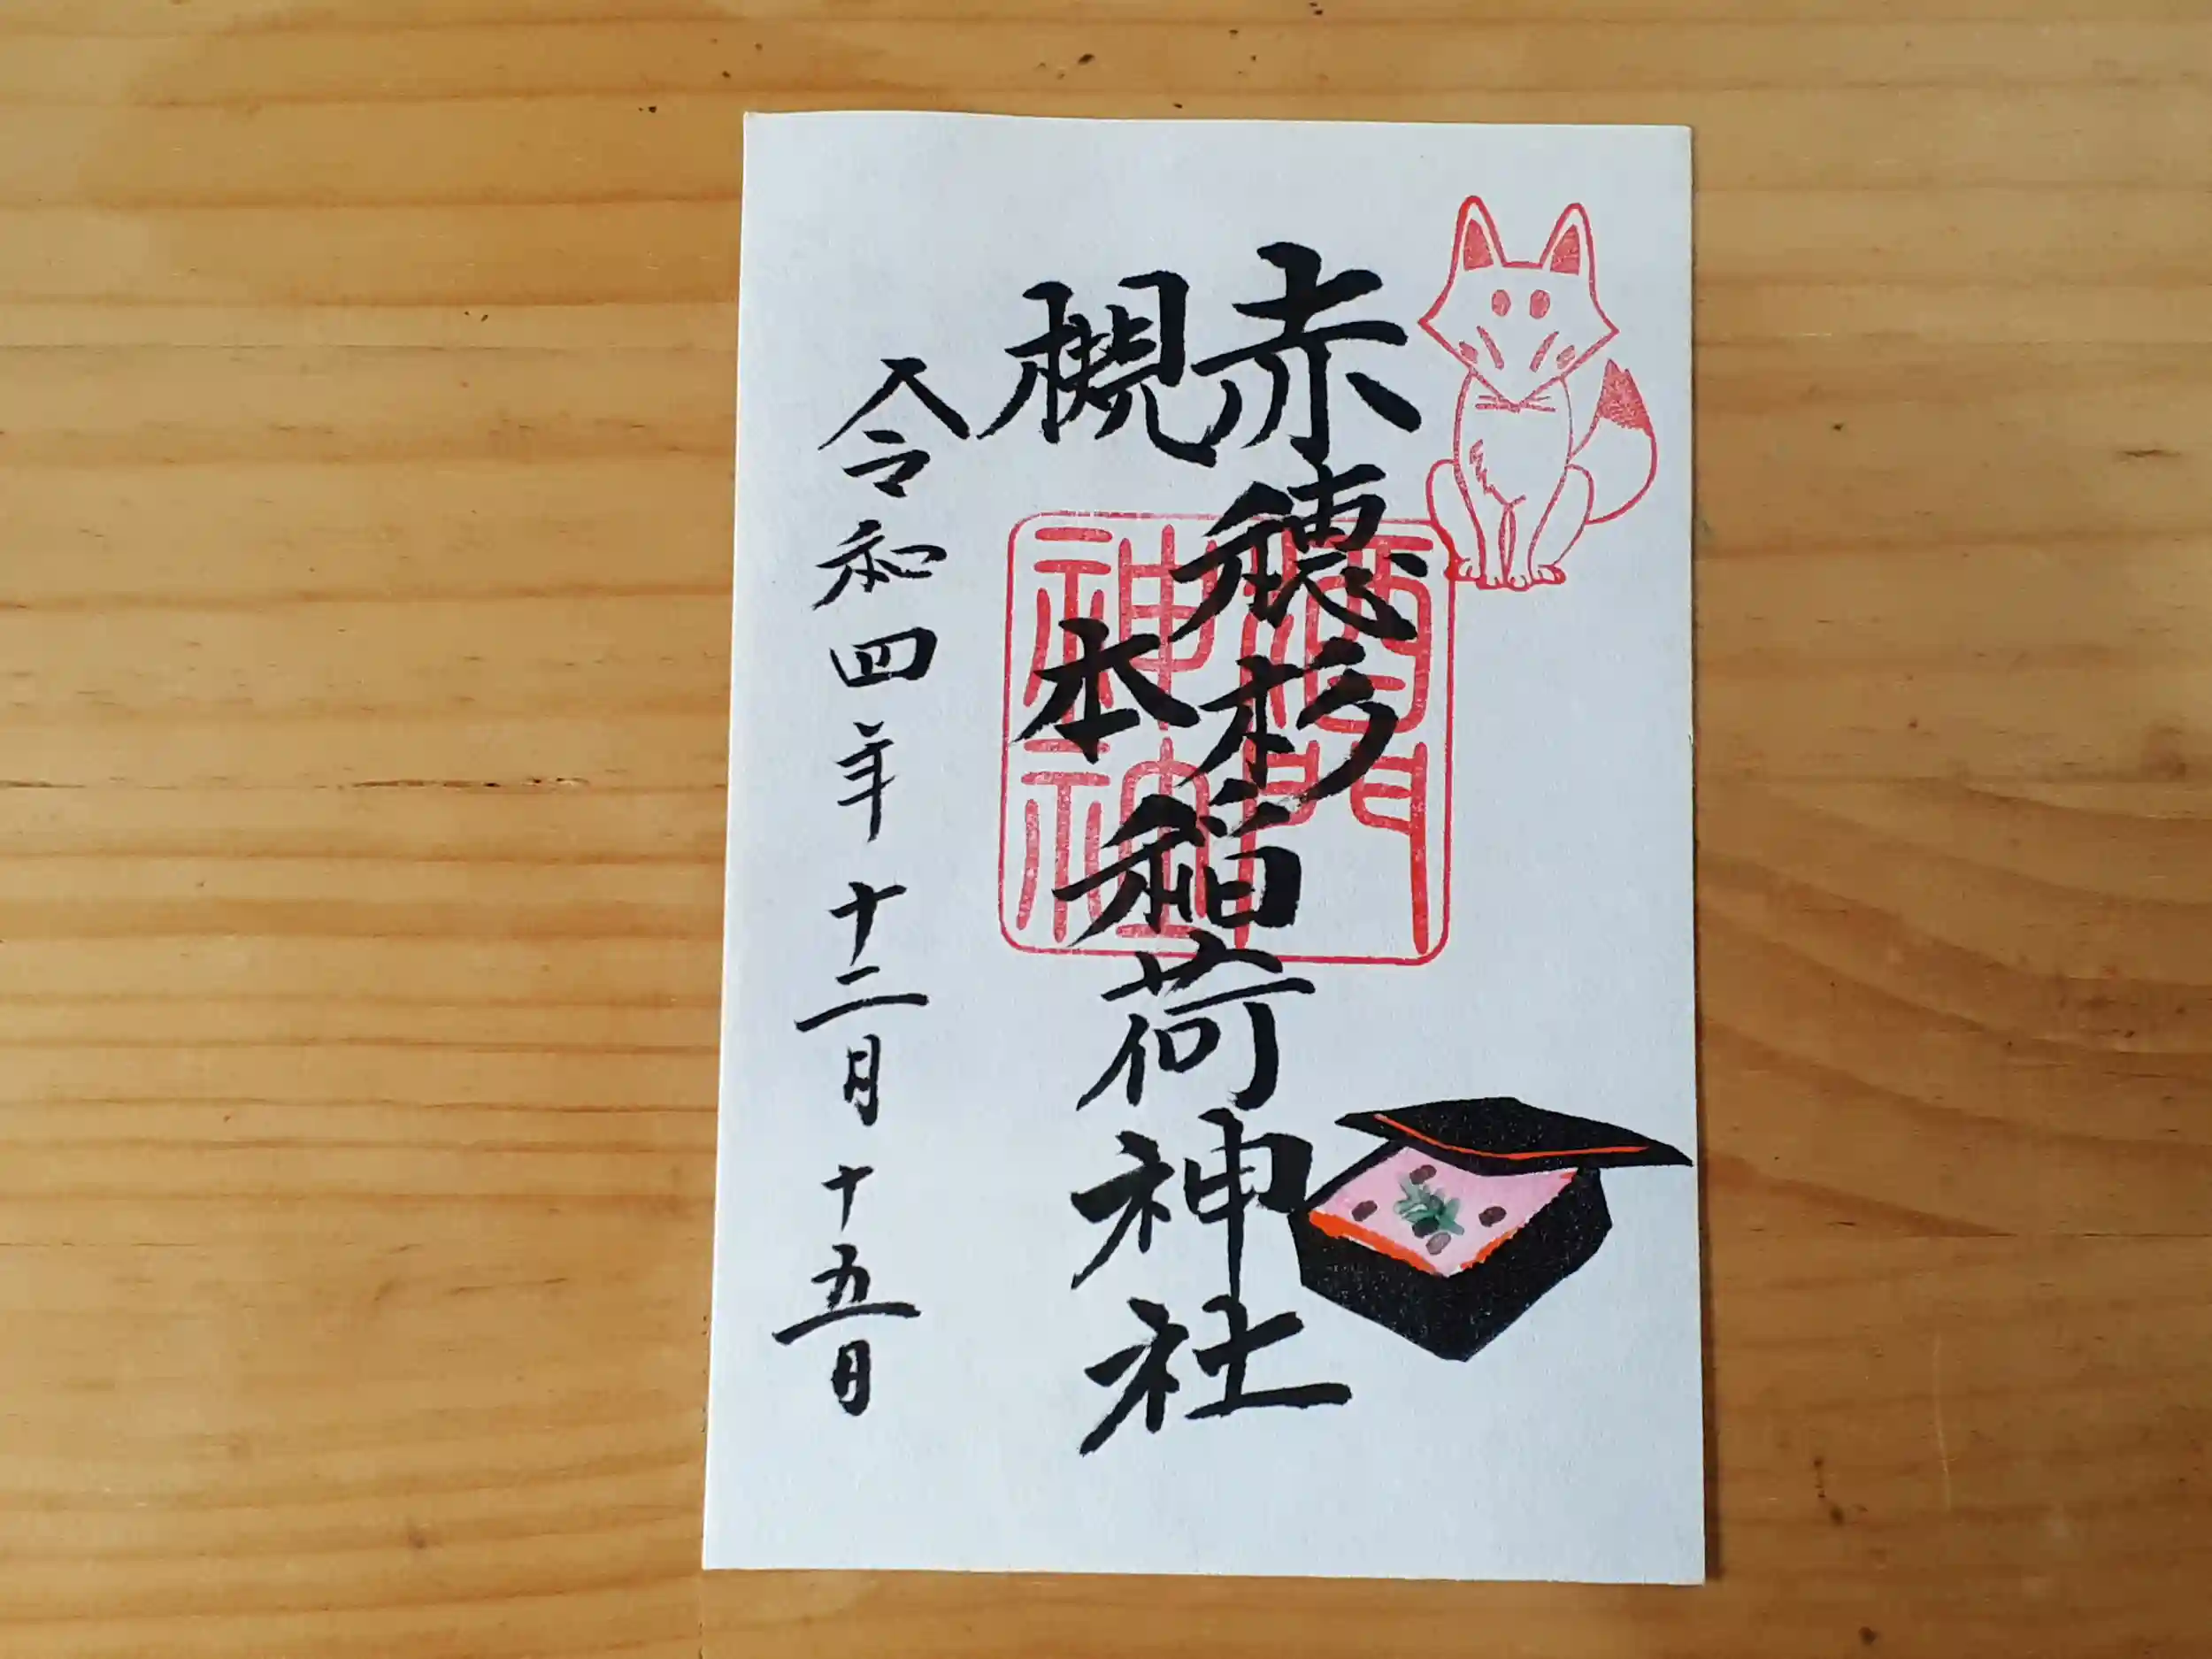 赤穂杉
槻本
稲荷神社
酒門
神社
令和四年十二月十五日